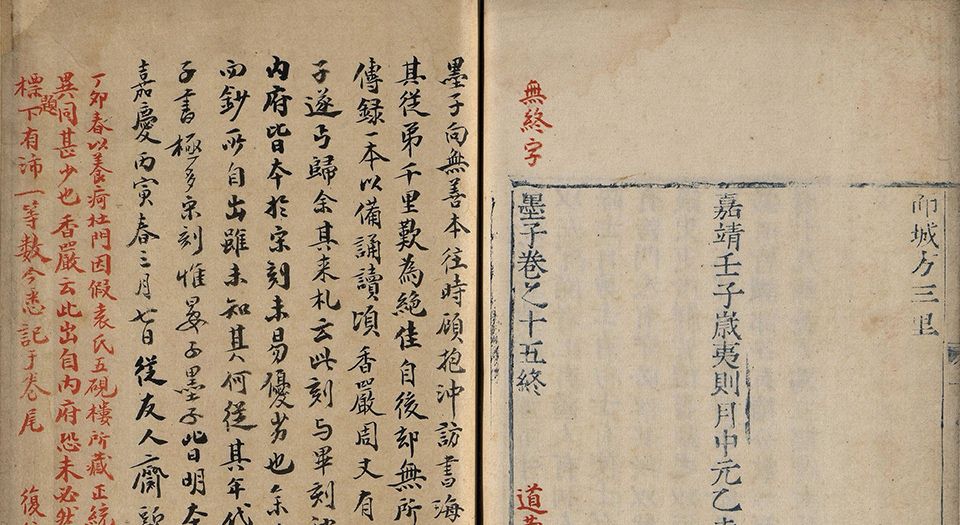 而城方三里
嘉靖壬子歲夷則月中元乙
無終字
墨子卷之十五終
道
墨子向無善本往時顧抱沖訪書海
其從弟千里歎為絕佳自後却無所
傳録一本以備誦讀頃香嚴周丈有
子遂丐歸余其来札云此刻与畢刻
内府皆日本於宋刻未易優劣也余
而鈔所自出雖未知其何從其年代
子書極多宋刻惟晏子墨子皆明本
嘉慶丙寅春三月七日從友人齋
丁卯春以養疴杜門因假袁氏五硯樓所藏正統
異同甚少也香嚴云此出自内府恐未必然
標題下有沛一等數今悉記于卷尾 復